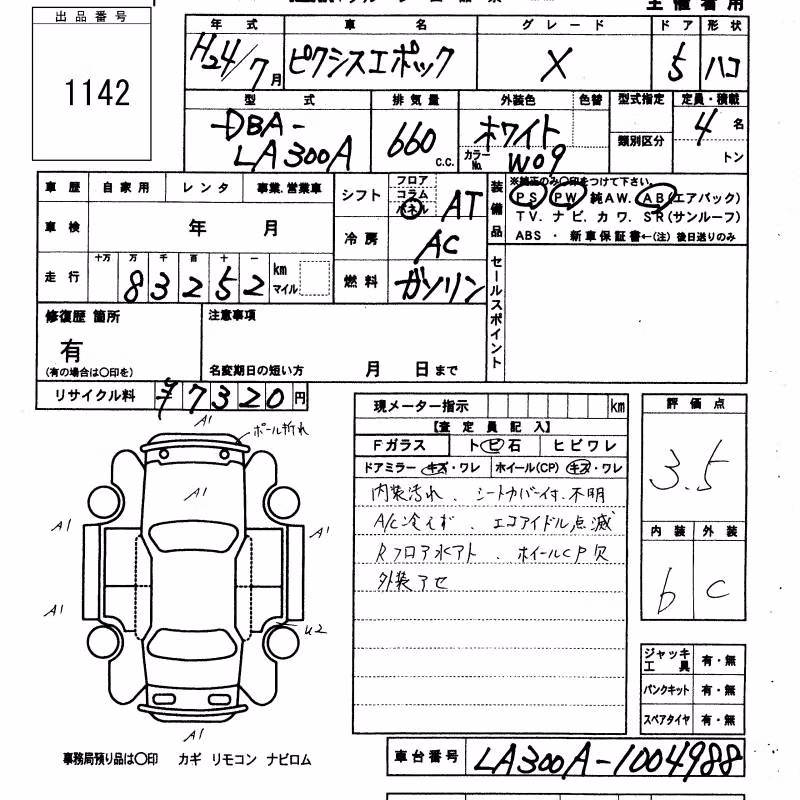 主催者用
出品番号
1142
年式 車名 グレード ドア 形状
H24/7月 ピクシスエポック X 5 ハコ
型式 排気量 外装色 色替 型式指定 定員・積載
-DBA- 660 c.c. ホワイト 類別区分 4名
LA300A カラーNo. W09 トン
車歴 自家用 レンタ 事業、営業車
シフト フロア コラム パネル AT
装備品 ※純正のみ〇印をつけて下さい。
PS PW 純AW. AB(エアバック)
TV. ナビ. カワ. SR(サンルーフ)
ABS ・ 新車保証書←(注) 後日送りのみ
車検 年 月
冷房 AC
走行 十万 万 千 百 十 一
83252 km マイル
燃料 ガソリン
セールスポイント
修復歴 箇所 注意事項
有
(有の場合は〇印を) 名変期日の短い方 月 日まで
リサイクル料 ¥7320円
現メーター指示 km
評価点
3.5
【査定員記入】
Fガラス トビ石 ヒビワレ
ドアミラー キズ・ワレ ホイール(CP) キズ・ワレ
内装汚れ、シートカバー付.不明
A/C冷えず、エコアイドル点滅
Rフロア水アト、ホイールCP欠
外装アセ
内装 外装
b C
A1 ポール折れ
A1
A1 A1
A1 U2
A1
ジャッキ工具 有・無
パンクキット 有・無
スペアタイヤ 有・無
事務局預り品は〇印 カギ リモコン ナビロム
車台番号 LA300A-1004988